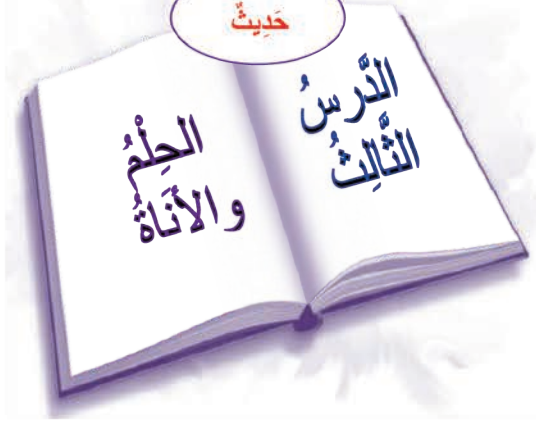 حَدِيثٌ
الدَّرسُ
الثَّالِثُ
الحِلْمُ
والأَنَاةُ